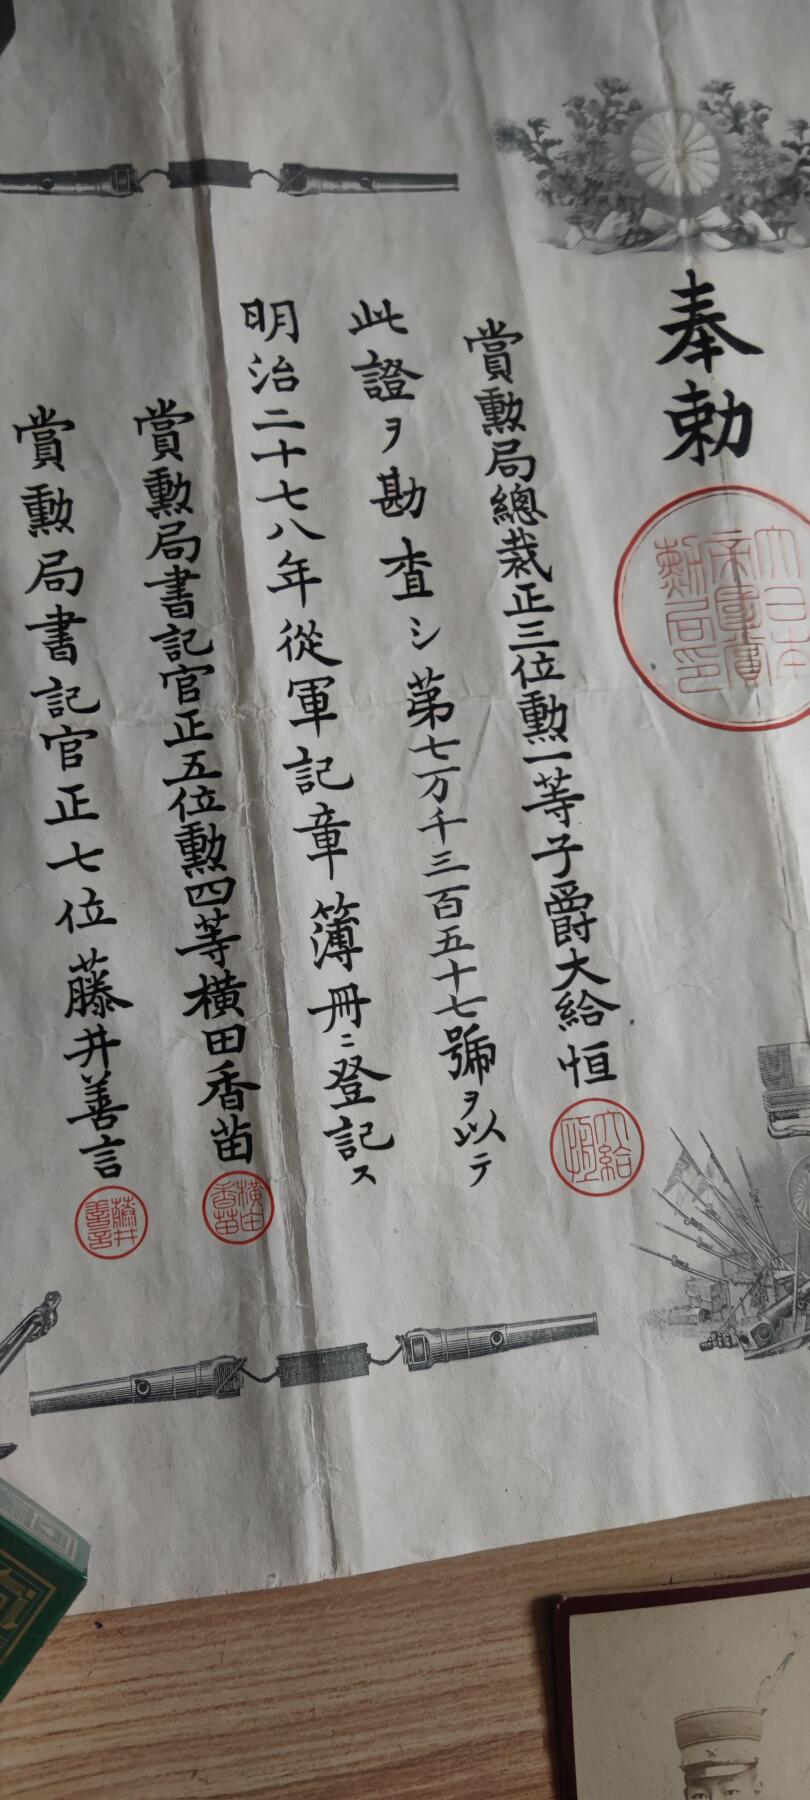 奉勅
大日本帝國賞勲局印
賞勲局總裁正三位勲一等子爵大給恒
大給恒
此證ヲ勘査シ第七万千三百五十七號ヲ以テ
明治二十七八年從軍記章簿冊ニ登記ス
賞勲局書記官正五位勲四等横田香苗
横田香苗
賞勲局書記官正七位藤井善言
藤井善言